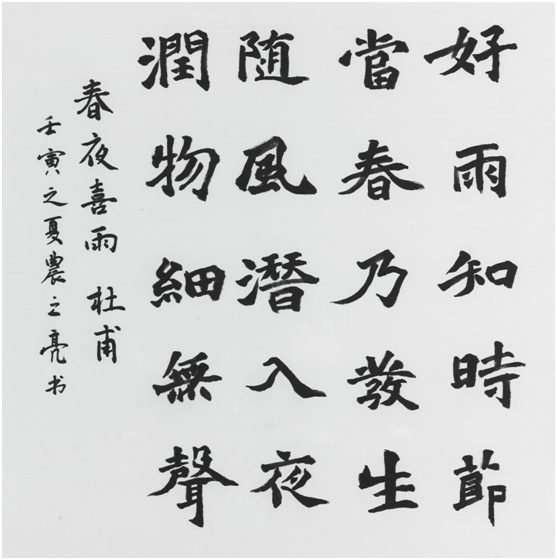 好雨知時節
當春乃發生
随風潛入夜
潤物細無聲
春夜喜雨 杜甫
壬寅之夏農之亮书